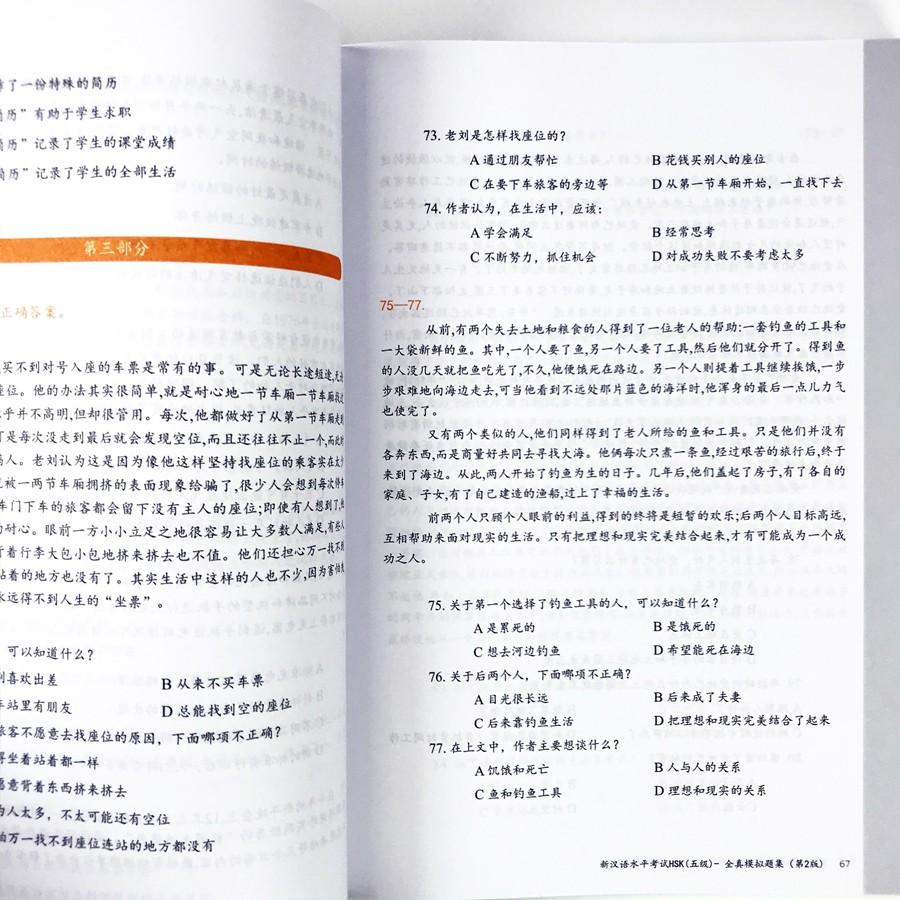 了一份特殊的简历
历”有助于学生求职
历”记录了学生的课堂成绩
历”记录了学生的全部生活
第三部分
正确答案。
买不到对号入座的车票是常有的事。可是无论长途短途,无
座位。他的办法其实很简单,就是耐心地一节车厢一节车厢
乎并不高明,但却很管用。每次,他都做好了从第一节车厢走
可是每次没走到最后就会发现空位,而且还往往不止一个,而此
人。老刘认为这是因为像他这样坚持找座位的乘客实在太
被一两节车厢拥挤的表面现象给骗了,很少人会想到每次停
车门下车的旅客都会留下没有主人的座位;即使有人想到了,
耐心。眼前一方小小立足之地很容易让大多数人满足,有些人
着行李大包小包地挤来挤去也不值。他们还担心万一找不
站着的地方也没有了。其实生活中这样的人也不少,因为害怕
永远得不到人生的“坐票”。
可以知道什么?
喜欢出差
B 从来不买车票
车站里有朋友
D 总能找到空的座位
旅客不愿意去找座位的原因,下面哪项不正确?
坐着站着都一样
愿意背着东西挤来挤去
人太多,不太可能还有空位
怕万一找不到座位连站的地方都没有
73. 老刘是怎样找座位的?
A 通过朋友帮忙
B 花钱买别人的座位
C 在要下车旅客的旁边等
D 从第一节车厢开始,一直找下去
74. 作者认为,在生活中,应该:
A 学会满足
B 经常思考
C 不断努力,抓住机会
D 对成功失败不要考虑太多
75—77.
从前,有两个失去土地和粮食的人得到了一位老人的帮助:一套钓鱼的工具和
一大袋新鲜的鱼。其中,一个人要了鱼,另一个人要了工具,然后他们就分开了。得到鱼
的人没几天就把鱼吃光了,不久,他便饿死在路边。另一个人则提着工具继续挨饿,一步
步艰难地向海边走去,可当他看到不远处那片蓝色的海洋时,他浑身的最后一点儿力气
也使完了。
又有两个类似的人,他们同样得到了老人所给的鱼和工具。只是他们并没有
各奔东西,而是商量好共同去寻找大海。他俩每次只煮一条鱼,经过艰苦的旅行后,终于
来到了海边。从此,两人开始了钓鱼为生的日子。几年后,他们盖起了房子,有了各自的
家庭、子女,有了自己建造的渔船,过上了幸福的生活。
前两个人只顾个人眼前的利益,得到的终将是短暂的欢乐;后两个人目标高远,
互相帮助来面对现实的生活。只有把理想和现实完美结合起来,才有可能成为一个成
功之人。
75. 关于第一个选择了钓鱼工具的人,可以知道什么?
A 是累死的
B 是饿死的
C 想去河边钓鱼
D 希望能死在海边
76. 关于后两个人,下面哪项不正确?
A 目光很长远
B 后来成了夫妻
C 后来靠钓鱼生活
D 把理想和现实完美结合了起来
77. 在上文中,作者主要想谈什么?
A 饥饿和死亡
B 人与人的关系
C 鱼和钓鱼工具
D 理想和现实的关系
新汉语水平考试HSK(五级)- 全真模拟题集(第2版) 67